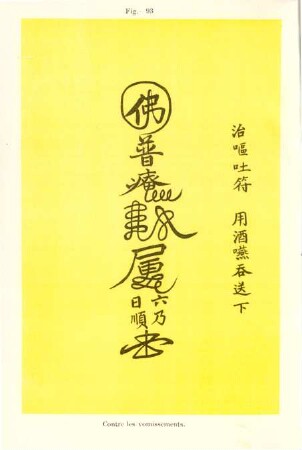 Fig. 93
治嘔吐符 用酒嚥吞送下
佛
普
庵
六乃
日順
Contre les vomissements.